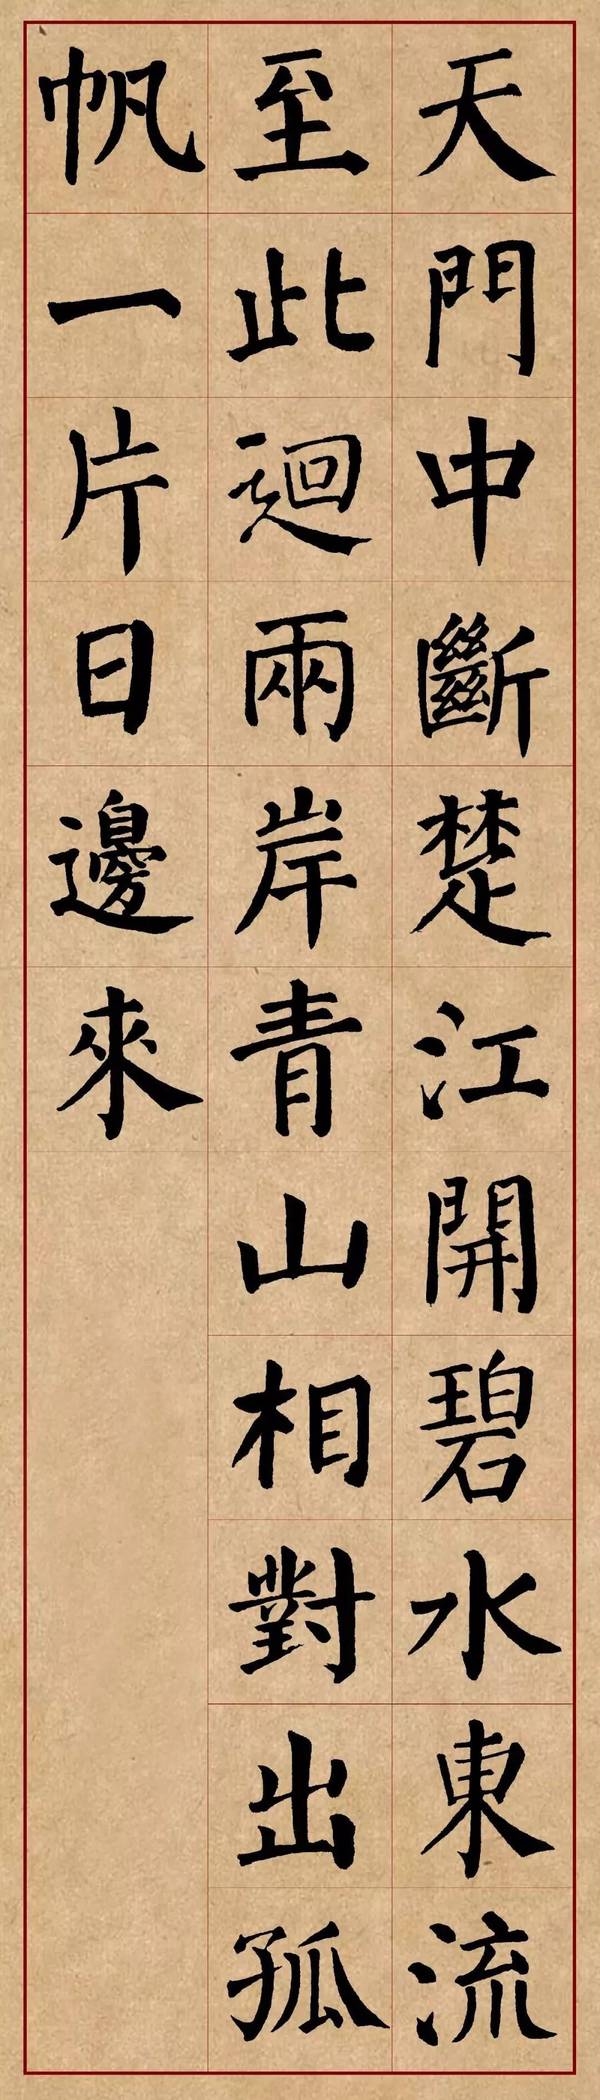 天門中斷楚江開碧水東流
至此迴兩岸青山相對出孤
帆一片日邊來